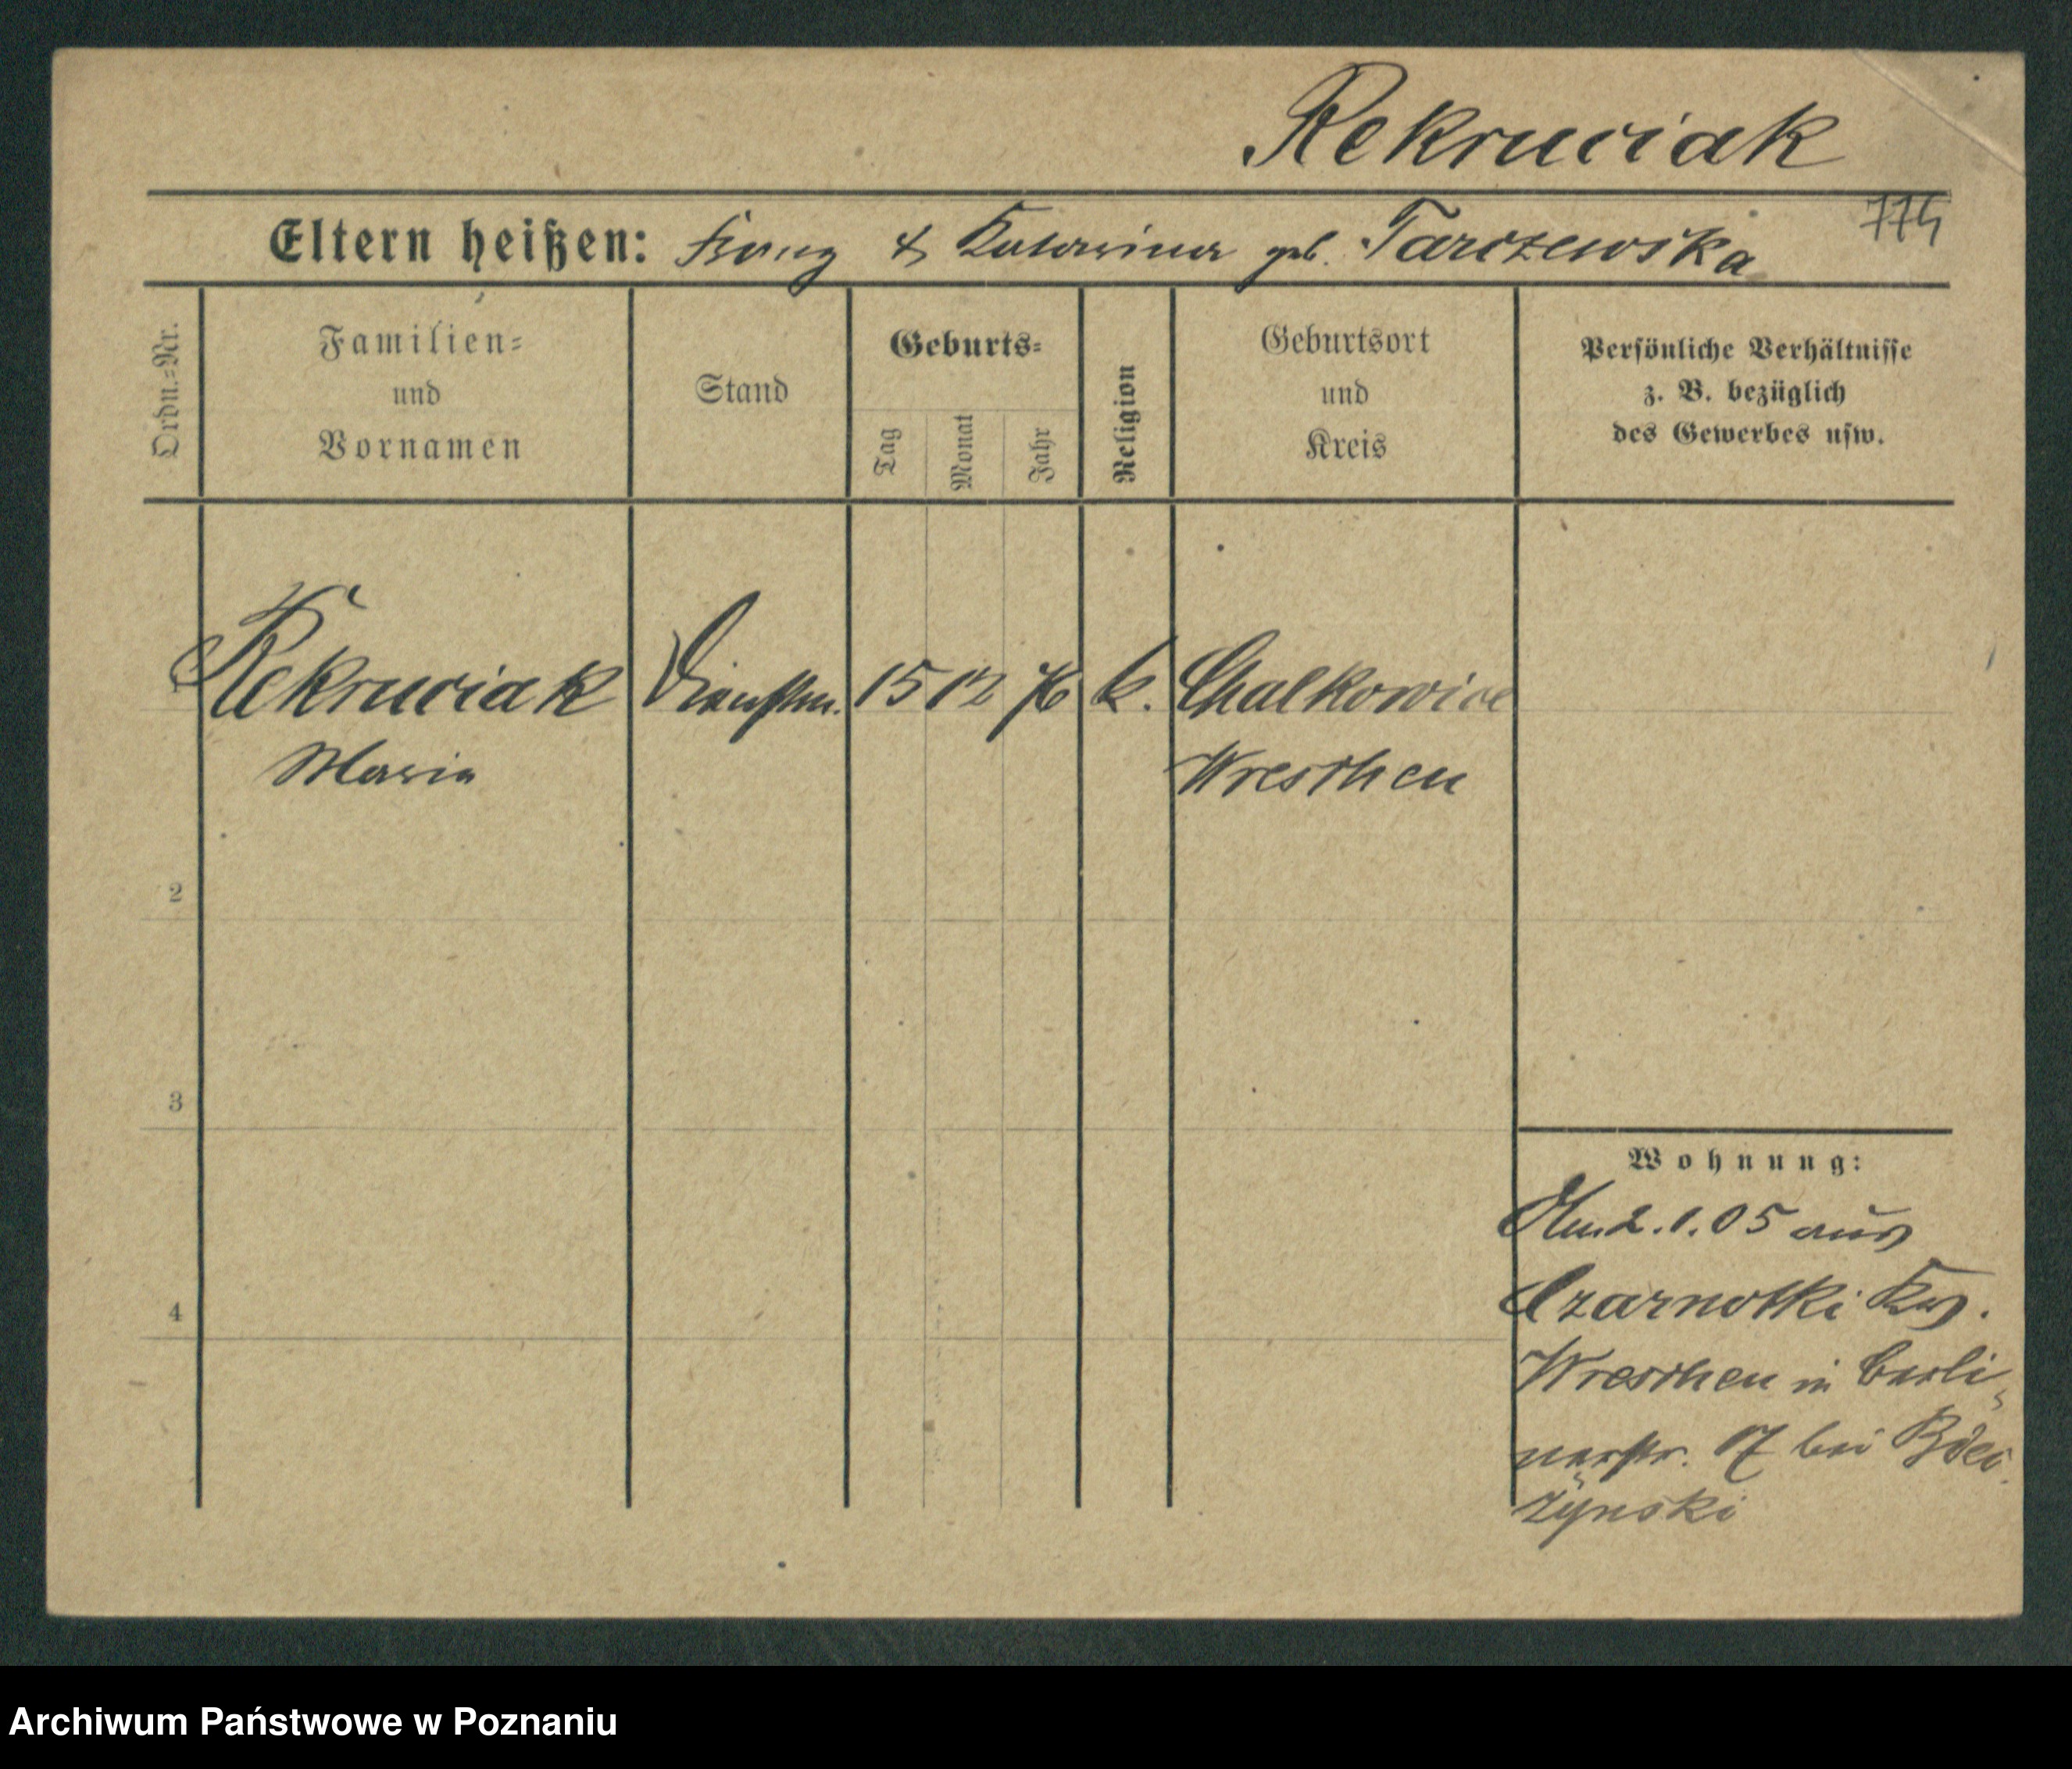 Rekruciak
774
Eltern heißen: Franz & Katarina geb. Tarczewska
Ordn.-Nr.
Familien-
und
Vornamen
Stand
Geburts-
Tag
Monat
Jahr
Religion
Geburtsort
und
Kreis
Persönliche Verhältnisse
z. B. bezüglich
des Gewerbes usw.
1 Rekruciak Dienstm. 15 12 76 k. Chalkowice
Maria Wreschen
2
3
4
Wohnung:
Am 2.1.05 aus
Czarnotki Krs.
Wreschen in Berli-
nerstr. 17 bei
Archiwum Państwowe w Poznaniu